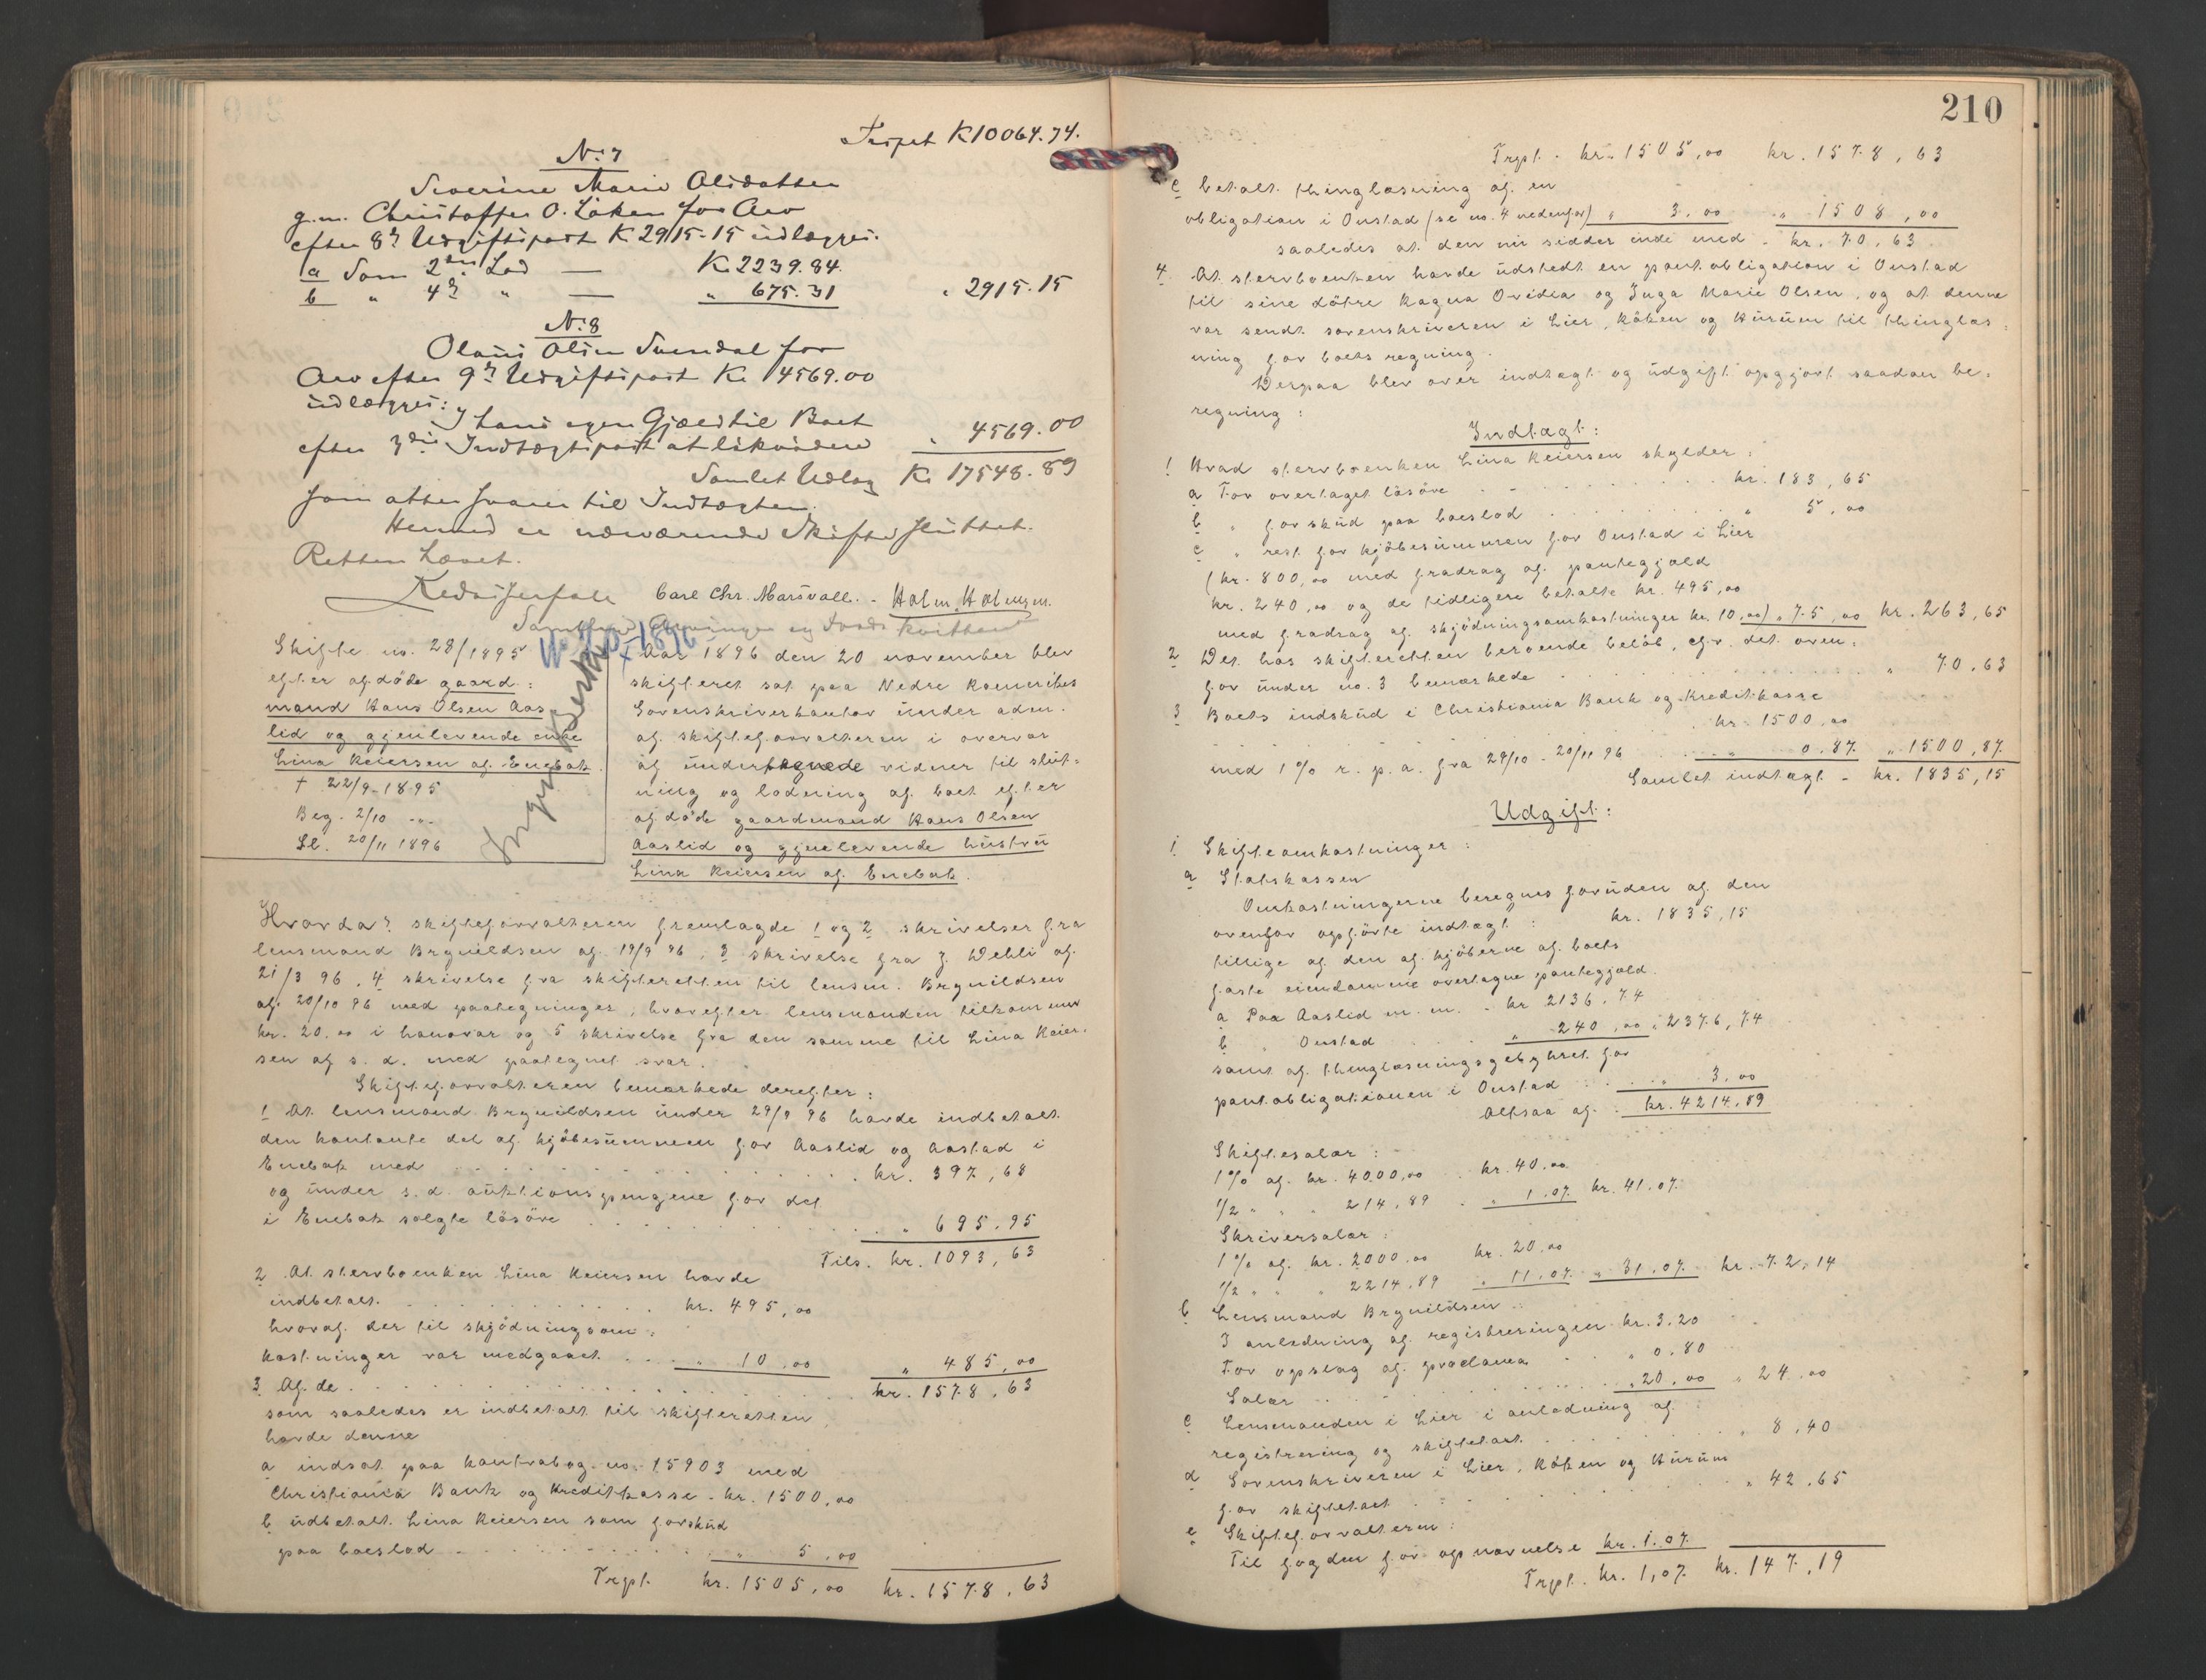 Trspt K 10064.74.
No 7
Severine Marie Olsdatter
g. m. Christoffer O. Løken for Arv
efter 8de Udgiftspost K 2915.15 udlægges:
a Som 2den Lod — K 2239.84.
b " 4de " — " 675.31 " 2915.15
No 8
Olaus Olsen Svendal for
Arv efter 9de Udgiftspost Kr 4569.00
udlægges:
I hans egen Gjæld til Boet
efter 3die Indtægtspost at likvidere " 4569.00
Samlet Udlæg Kr 17548.89
som atter svarer til Indtægten.
Hermed er nærværende Skifte sluttet.
Retten hævet.
Carl Chr. Marsvall. - Holm Holmsen.
Skifte no. 28/1895
efter afdøde gaard-
mand Hans Olsen Aas-
lid og gjenlevende enke
Lina Reiersen af Enebak.
† 22/9-1895
Beg. 2/10 -"-
Sl. 20/11 1896
Ingen Værker
Aar 1896 den 20 november blev
skifteret sat paa Nedre Romerikes
Sorenskriverkontor under adm.
af skifteforvalteren i overvær
af undertegnede vidner til slut-
ning og lodning af boet efter
afdøde gaardmand Hans Olsen
Aaslid og gjenlevende hustru
Lina Reiersen af Enebak.
Hvorda? skifteforvalteren fremlagde 1 og 2 skrivelser fra
lensmand Brynildsen af 19/9 96, 3 skrivelse fra J. Dehli af
21/3 96, 4 skrivelse fra skifteretten til lensm. Brynildsen
af 20/10 96 med paategninger, hvorefter lensmanden tilkommer
kr. 20.00 i honorar og 5 skrivelse fra den samme til Lina Reier-
sen af s. d. med paategnet svar.
Skifteforvalteren bemærkede derefter:
1 At lensmand Brynildsen under 29/9 96 havde indbetalt
den kontante del af kjøbesummen for Aaslid og Aastad i
Enebak med kr. 397,68
og under s. d. auktionspengene for det
i Enebak solgte løsøre " 695.95
Tils. kr. 1093,63
2 At stervboenken Lina Reiersen havde
indbetalt kr. 495,00
hvoraf der til skjødningsom-
kostninger var medgaaet " 10,00 " 485,00
3 Af de kr. 1578,63
som saaledes er indbetalt til skifteretten
havde denne
a indsat paa kontrabog no. 15903 med
Christiania Bank og Kreditkasse - kr. 1500,00
b udbetalt Lina Reiersen som forskud
paa boeslod " 5,00
Trpt. kr. 1505,00 kr. 1578,63
210
Trpt. kr. 1505,00 kr. 1578,63
c betalt thinglæsning af en
obligation i Onstad (se no. 4 nedenfor) " 3.00 " 1508,00
saaledes at den nu sidder inde med - kr. 70.63
4. At stervboenken havde udstedt en pantobligation i Onstad
til sine døtre Ragna Ovidia og Inga Marie Olsen, og at denne
var sendt sorenskriveren i Lier, Røken og Hurum til thinglæs-
ning for boets regning.
Derpaa blev over indtægt og udgift opgjort saadan be-
regning:
Indtægt:
1 Hvad stervboenken Lina Reiersen skylder:
a For overtaget løsøre kr. 183,65
b " forskud paa boeslod " 5,00
c " rest for kjøbesummen for Onstad i Lier
(kr. 800,00 med fradrag af pantegjæld
kr. 240,00 og de tidligere betalte kr. 495,00
med fradrag af skjødningsomkostninger kr. 10,00) " 75,00 kr. 263,65
2 Det hos skifteretten beroende beløb, cfr. det oven-
for under no. 3 bemærkede " 70,63
3 Boets indskud i Christiania Bank og Kreditkasse
kr. 1500,00
med 1% r. p. a. fra 29/10 - 20/11 96 " 0,87 " 1500,87
Samlet indtægt - kr. 1835,15
Udgift:
1 Skifteomkostninger:
a Statskassen
Omkostningerne beregnes foruden af den
ovenfor opgjørte indtægt: kr. 1835,15
tillige af den af kjøberne af boets
faste eiendomme overtagne pantegjæld.
a Paa Aaslid m. m. - kr 2136,74
b " Onstad " 240,00 " 2376,74
samt af thinglæsningsgebyhret for
pantobligationen i Onstad " 3,00
Altsaa af: kr. 4214,89
Skiftesalær:
1% af kr. 4000,00 kr. 40,00
1/2 " " " 214,89 " 1,07 kr. 41.07
Skriversalær:
1% af kr. 2000.00 kr. 20,00
1/2 " " " 2214,89 " 11.07 " 31.07 kr. 72,14
b Lensmand Brynildsen
I anledning af registreringen kr. 3,20
For opslag af proclama " 0.80
Salær " 20,00 " 24,00
c Lensmanden i Lier i anledning af
registrering og skiftetaxt " 8,40
d Sorenskriveren i Lier, Røken og Hurum
for skiftetaxt " 42,65
e Skifteforvalteren:
Til fogden for opnævnelse kr. 1.07
Trpt. kr. 1,07 kr. 147,19